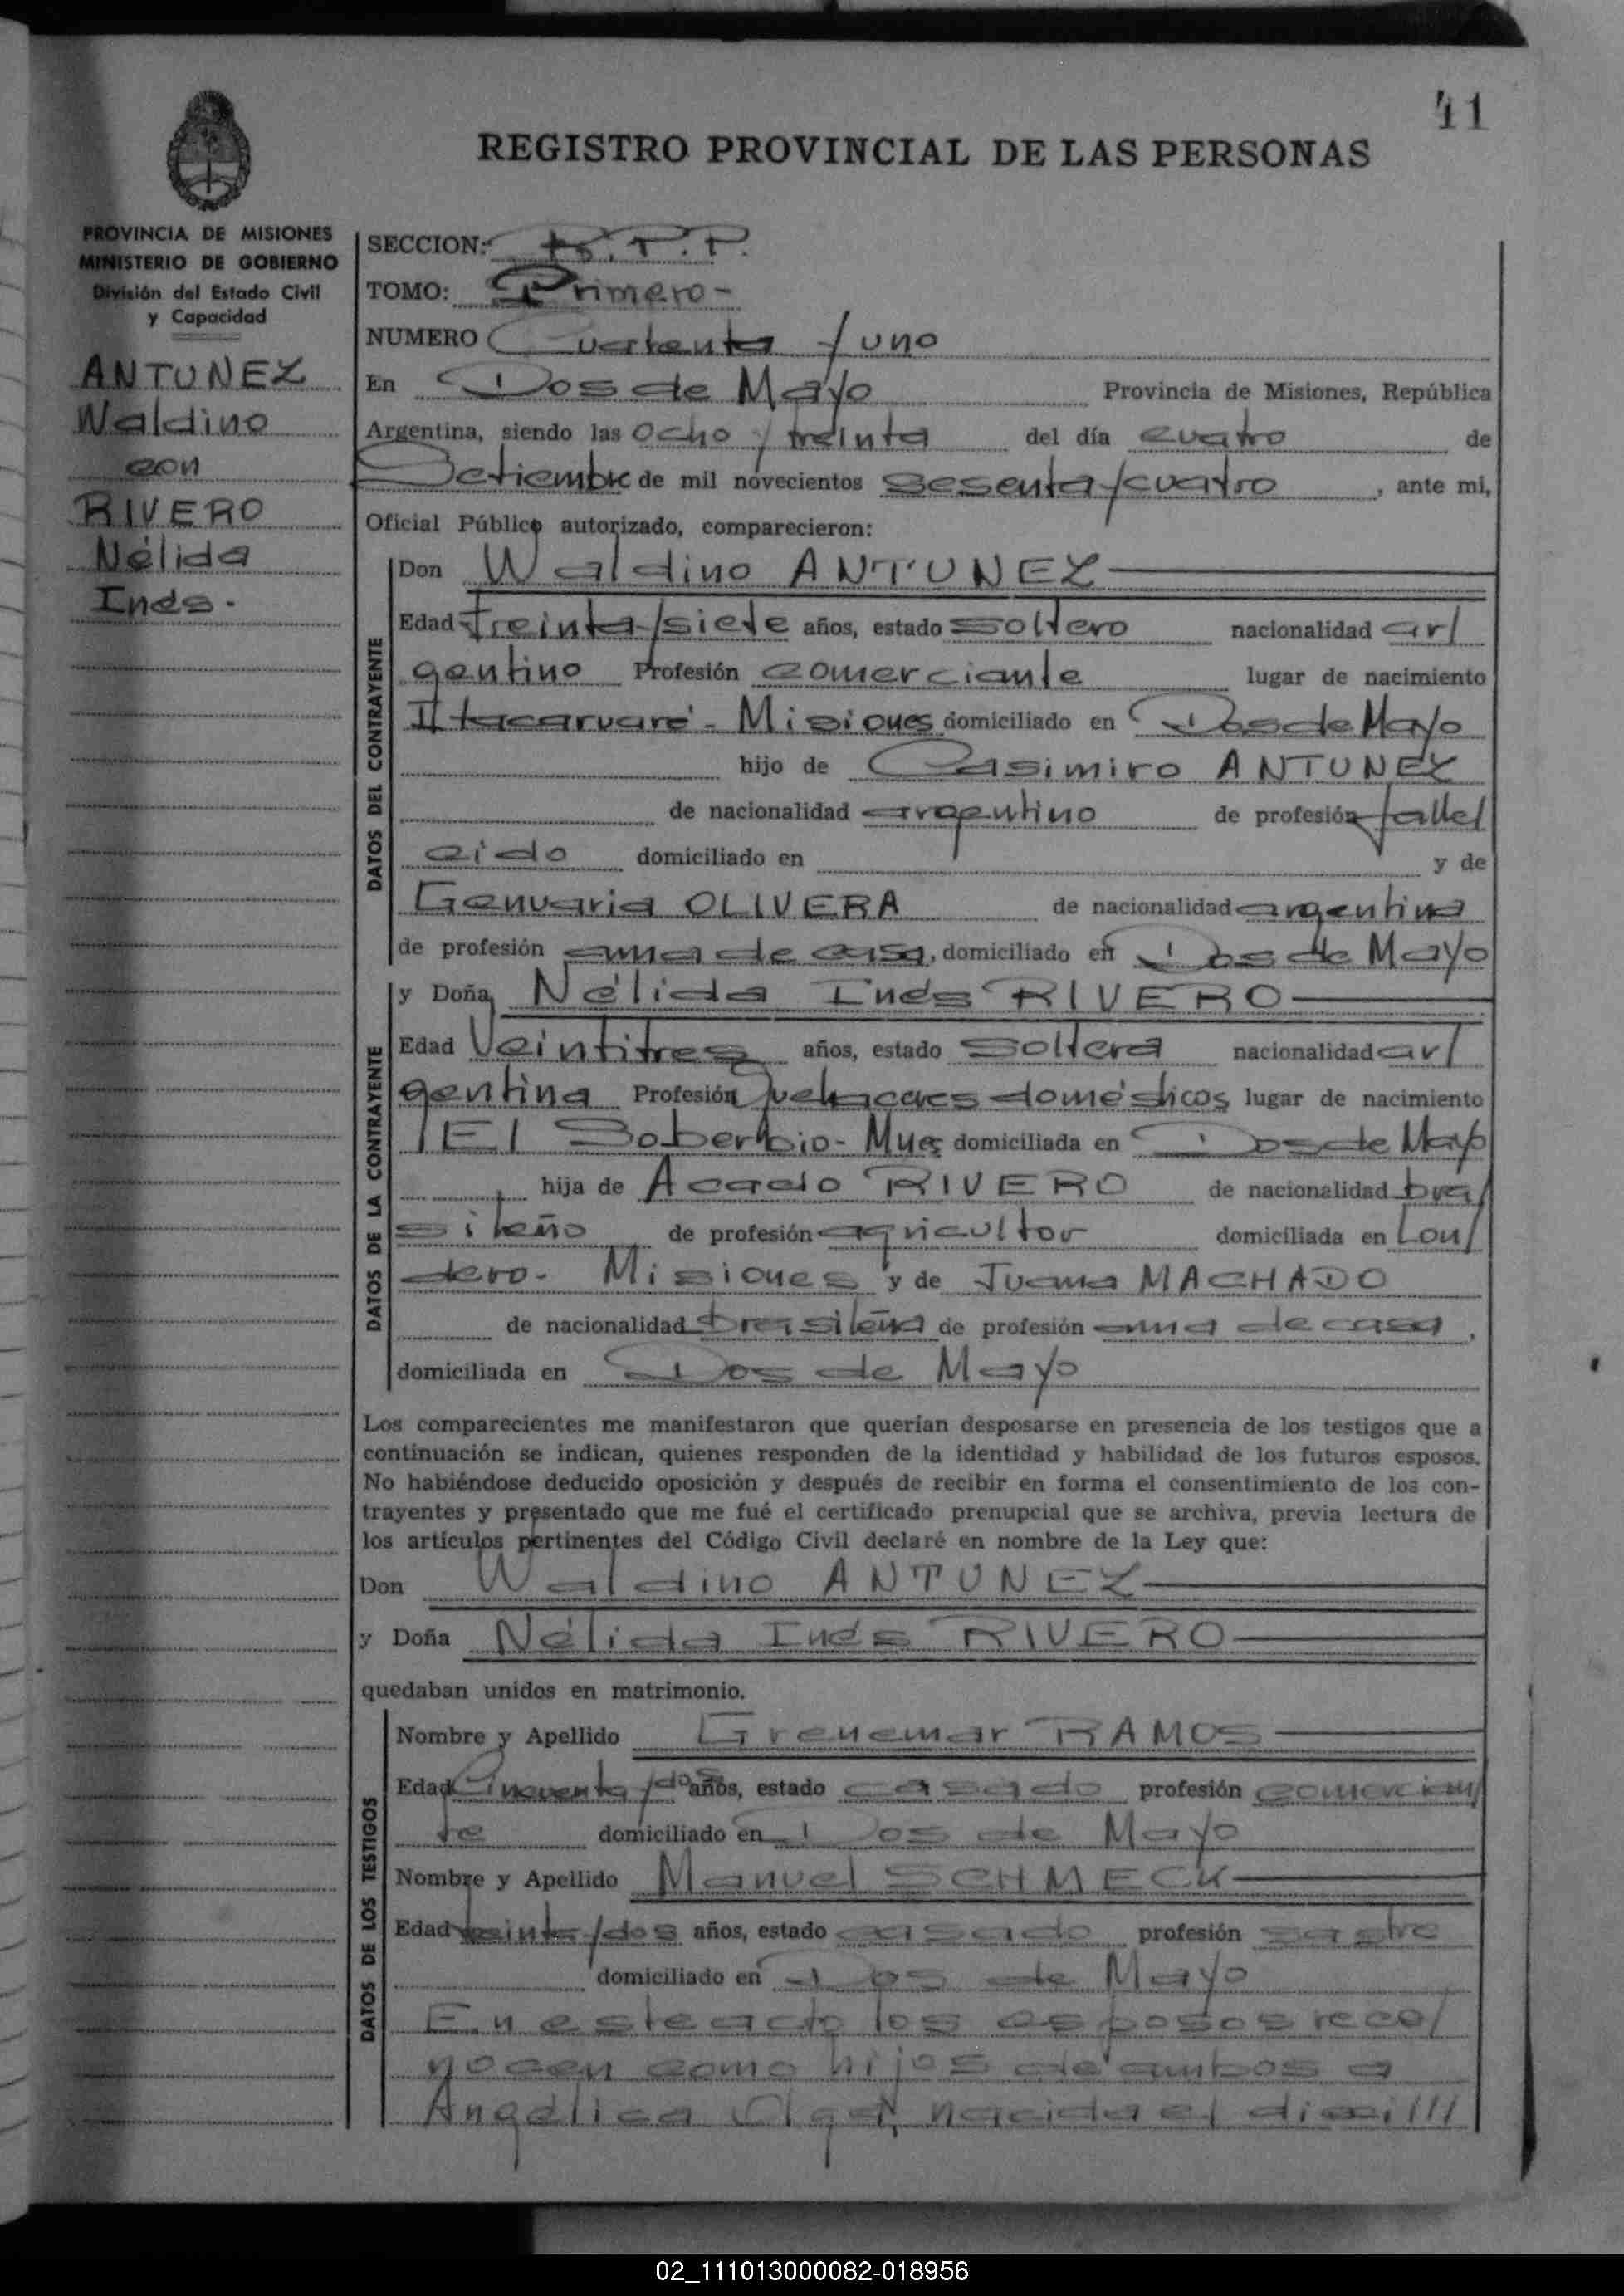 41
REGISTRO PROVINCIAL DE LAS PERSONAS
PROVINCIA DE MISIONES
MINISTERIO DE GOBIERNO
División del Estado Civil
y Capacidad
ANTUNEZ
Waldino
con
RIVERO
Nélida
Inés.
SECCION: R.P.P.
TOMO: Primero-
NUMERO Cuarenta y uno
En Dos de Mayo Provincia de Misiones, República
Argentina, siendo las ocho y treinta del día cuatro de
Setiembre de mil novecientos sesenta y cuatro, ante mi,
Oficial Público autorizado, comparecieron:
DATOS DEL CONTRAYENTE
Don Waldino ANTUNEZ
Edad treinta y siete años, estado soltero nacionalidad ar/
gentino Profesión comerciante lugar de nacimiento
Itacaruaré- Misiones domiciliado en Dos de Mayo
hijo de Casimiro ANTUNEZ
de nacionalidad argentino de profesión falle/
cido domiciliado en y de
Genuaria OLIVERA de nacionalidad argentina
de profesión ama de casa, domiciliado en Dos de Mayo
DATOS DE LA CONTRAYENTE
y Doña Nélida Inés RIVERO
Edad Veintitres años, estado soltera nacionalidad ar/
gentina Profesión quehaceres domésticos lugar de nacimiento
El Soberbio- Mnes domiciliada en Dos de Mayo
hija de Acacio RIVERO de nacionalidad bra/
sileño de profesión agricultor domiciliada en Lon/
dero- Misiones y de Juana MACHADO
de nacionalidad brasileña de profesión ama de casa,
domiciliada en Dos de Mayo
Los comparecientes me manifestaron que querían desposarse en presencia de los testigos que a
continuación se indican, quienes responden de la identidad y habilidad de los futuros esposos.
No habiéndose deducido oposición y después de recibir en forma el consentimiento de los con-
trayentes y presentado que me fué el certificado prenupcial que se archiva, previa lectura de
los artículos pertinentes del Código Civil declaré en nombre de la Ley que:
Don Waldino ANTUNEZ
y Doña Nélida Inés RIVERO
quedaban unidos en matrimonio.
DATOS DE LOS TESTIGOS
Nombre y Apellido Grenemar RAMOS
Edad Cincuenta y dos años, estado casado profesión comercian/
te domiciliado en Dos de Mayo
Nombre y Apellido Manuel SCHMECK
Edad treinta y dos años, estado casado profesión sastre
domiciliado en Dos de Mayo
En este acto los esposos reco/
nocen como hijos de ambos a
Angélica Olga, nacida el dieci///
02_111013000082-018956